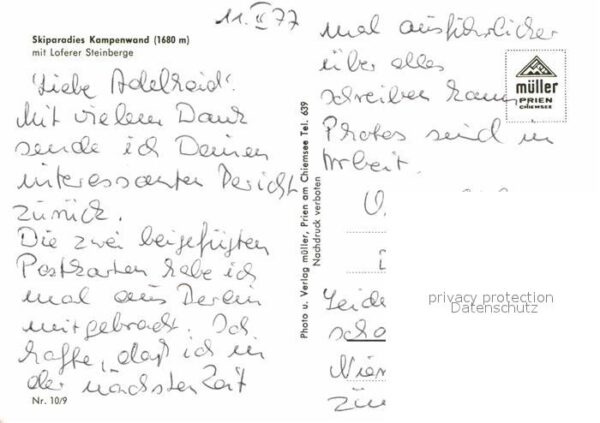 11. II 77
Skiparadies Kampenwand (1680 m)
mit Loferer Steinberge
Liebe Adelheid!
Mit vielem Dank
sende ich Deinen
interessanten Bericht
zurück.
Die zwei beigefügten
Postkarten habe ich
mal aus Berlin
mitgebracht. Ich
hoffe, daß ich in
der nächsten Zeit
Nr. 10/9
Photo u. Verlag müller, Prien am Chiemsee Tel. 639
Nachdruck verboten
mal ausführlicher
über alles
schreiben kann
Photos sind in
Arbeit.
müller
PRIEN
CHIEMSEE
privacy protection
Datenschutz
Leide
scho